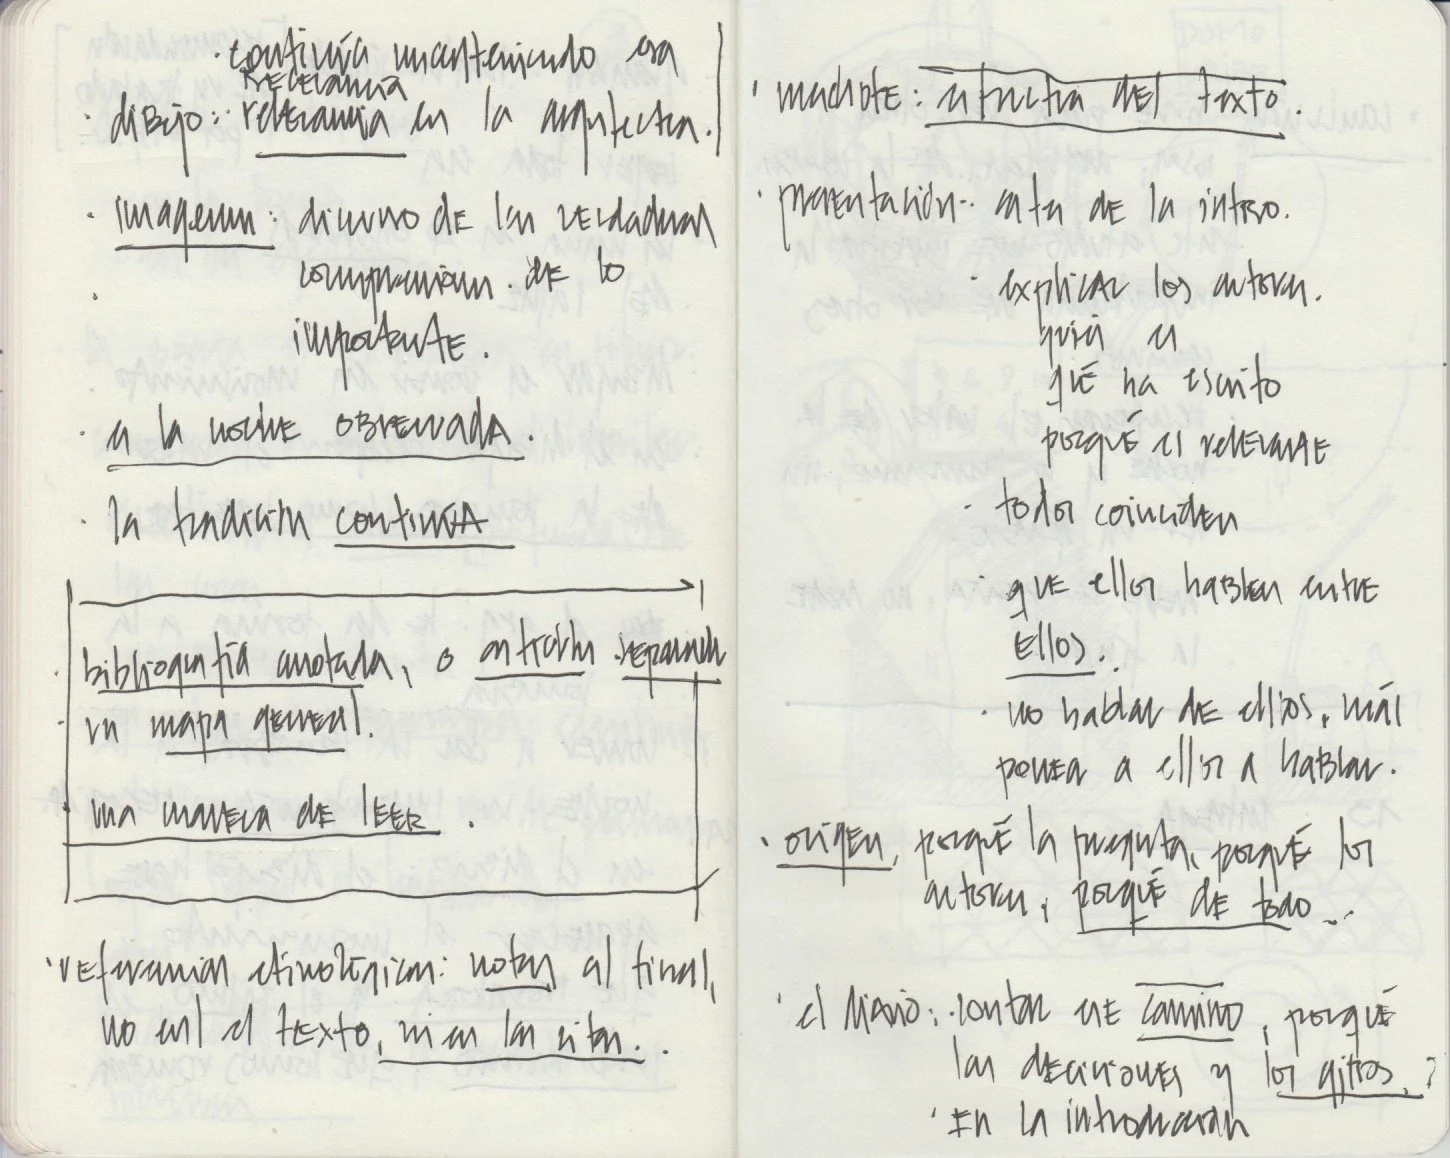 · continúa manteniendo esa
relevancia
· dibujo: relevancia en la arquitectura.
· imagenes: discurso de las verdaderas
comprensiones. de lo
importante.
· a la noche observada.
· la tradición continúa
· bibliografía anotada, o entrarlas separadas
· un mapa general.
· una manera de leer.
· referencias etimológicas: notas al final,
no en el texto, ni en las citas..
· machote: estructura del texto.
· presentación·· antes de la intro.
· explicar los autores.
quién es
qué ha escrito
porqué es relevante
· todos coinciden
· que ellos hablen entre
ellos..
· no hablar de ellos, más
poner a ellos a hablar.
· origen, porqué la pregunta, porqué los
autores, porqué de todo...
· el diario: contar ese camino, porqué
las decisiones y los giros.?
· En la introducción